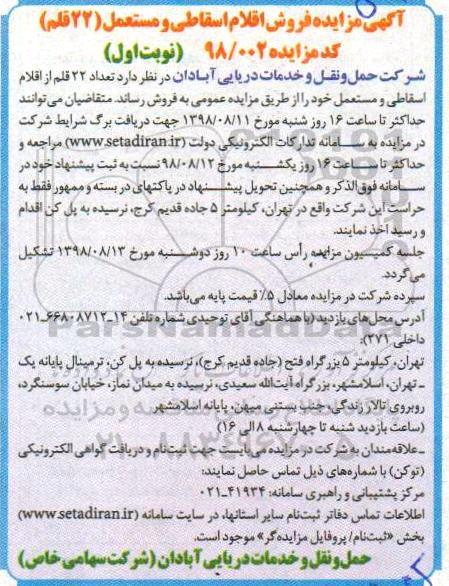 آگهی مزایده فروش اقلام اسقاطی و مستعمل (۲۲ قلم)
کد مزایده ۹۸/۰۰۲ (نوبت اول)
شرکت حمل و نقل و خدمات دریایی آبادان در نظر دارد تعداد ۲۲ قلم از اقلام
اسقاطی و مستعمل خود را از طریق مزایده عمومی به فروش رساند. متقاضیان می‌توانند
حداکثر تا ساعت ۱۶ روز شنبه مورخ ۱۳۹۸/۰۸/۱۱ جهت دریافت برگ شرایط شرکت
در مزایده به سامانه تدارکات الکترونیکی دولت (www.setadiran.ir) مراجعه و
حداکثر تا ساعت ۱۶ روز یکشنبه مورخ ۹۸/۰۸/۱۲ نسبت به ثبت پیشنهاد خود در
سامانه فوق‌الذکر و همچنین تحویل پیشنهاد در پاکتهای در بسته و ممهور فقط به
حراست این شرکت واقع در تهران، کیلومتر ۵ جاده قدیم کرج، نرسیده به پل کن اقدام
و رسید اخذ نمایند.
جلسه کمیسیون مزایده رأس ساعت ۱۰ روز دوشنبه مورخ ۱۳۹۸/۰۸/۱۳ تشکیل
می‌گردد.
سپرده شرکت در مزایده معادل ۵٪ قیمت پایه می‌باشد.
آدرس محل‌های بازدید (با هماهنگی آقای توحیدی شماره تلفن ۱۴-۶۶۸۰۸۷۱۲-۰۲۱
داخلی ۲۷۱):
تهران، کیلومتر ۵ بزرگراه فتح (جاده قدیم کرج)، نرسیده به پل کن، ترمینال پایانه یک
ـ تهران، اسلامشهر، بزرگراه آیت‌الله سعیدی، نرسیده به میدان نماز، خیابان سوسنگرد،
روبروی تالار زندگی، جنب بستنی میهن، پایانه اسلامشهر
(ساعت بازدید شنبه تا چهارشنبه ۸ الی ۱۶)
ـ علاقه‌مندان به شرکت در مزایده می‌بایست جهت ثبت‌نام و دریافت گواهی الکترونیکی
(توکن) با شماره‌های ذیل تماس حاصل نمایند:
مرکز پشتیبانی و راهبری سامانه: ۴۱۹۳۴-۰۲۱
اطلاعات تماس دفاتر ثبت‌نام سایر استانها، در سایت سامانه (www.setadiran.ir)
بخش «ثبت‌نام/ پروفایل مزایده‌گر» موجود است.
حمل و نقل و خدمات دریایی آبادان (شرکت سهامی خاص)